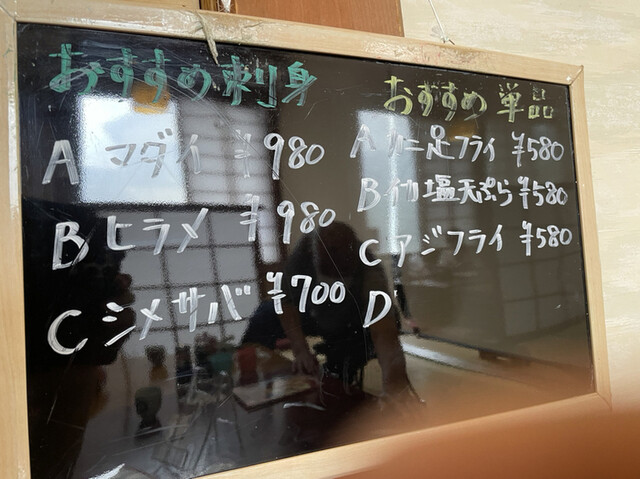 おすすめ刺身
A マダイ ¥980
B ヒラメ ¥980
C シメサバ ¥700
おすすめ 単品
A カニ足フライ ¥580
B イカ塩天ぷら ¥580
C アジフライ ¥580
D